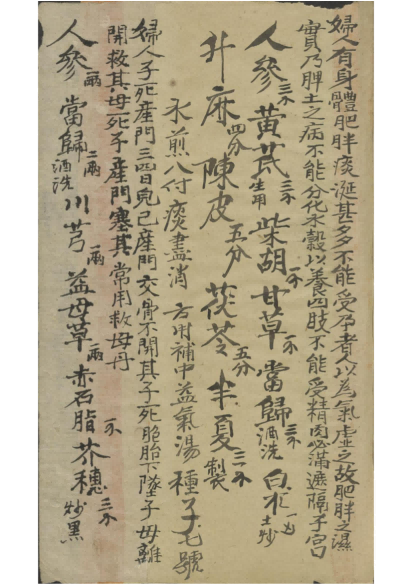 婦人有身體肥胖痰涎甚多不能受孕者以為氣虛之故肥胖之濕
實乃脾土之病不能分化水穀以養四肢不能受精肉必滿遮隔子宮
人參三小黃芪三小生用柴胡一小甘草一小當歸三小酒洗白朮一兩土炒
升麻四分陳皮五分茯苓五分半夏三小製
水煎八付痰盡消 方用補中益氣湯 種子七號
婦人子死產門三四日兒已產門交骨不開其子一死胞胎下墜子母離
開救其母死子產門塞其常用救母丹
人參一兩當歸二兩酒洗川芎一兩益母草一兩赤石脂一小芥穗三小炒黑